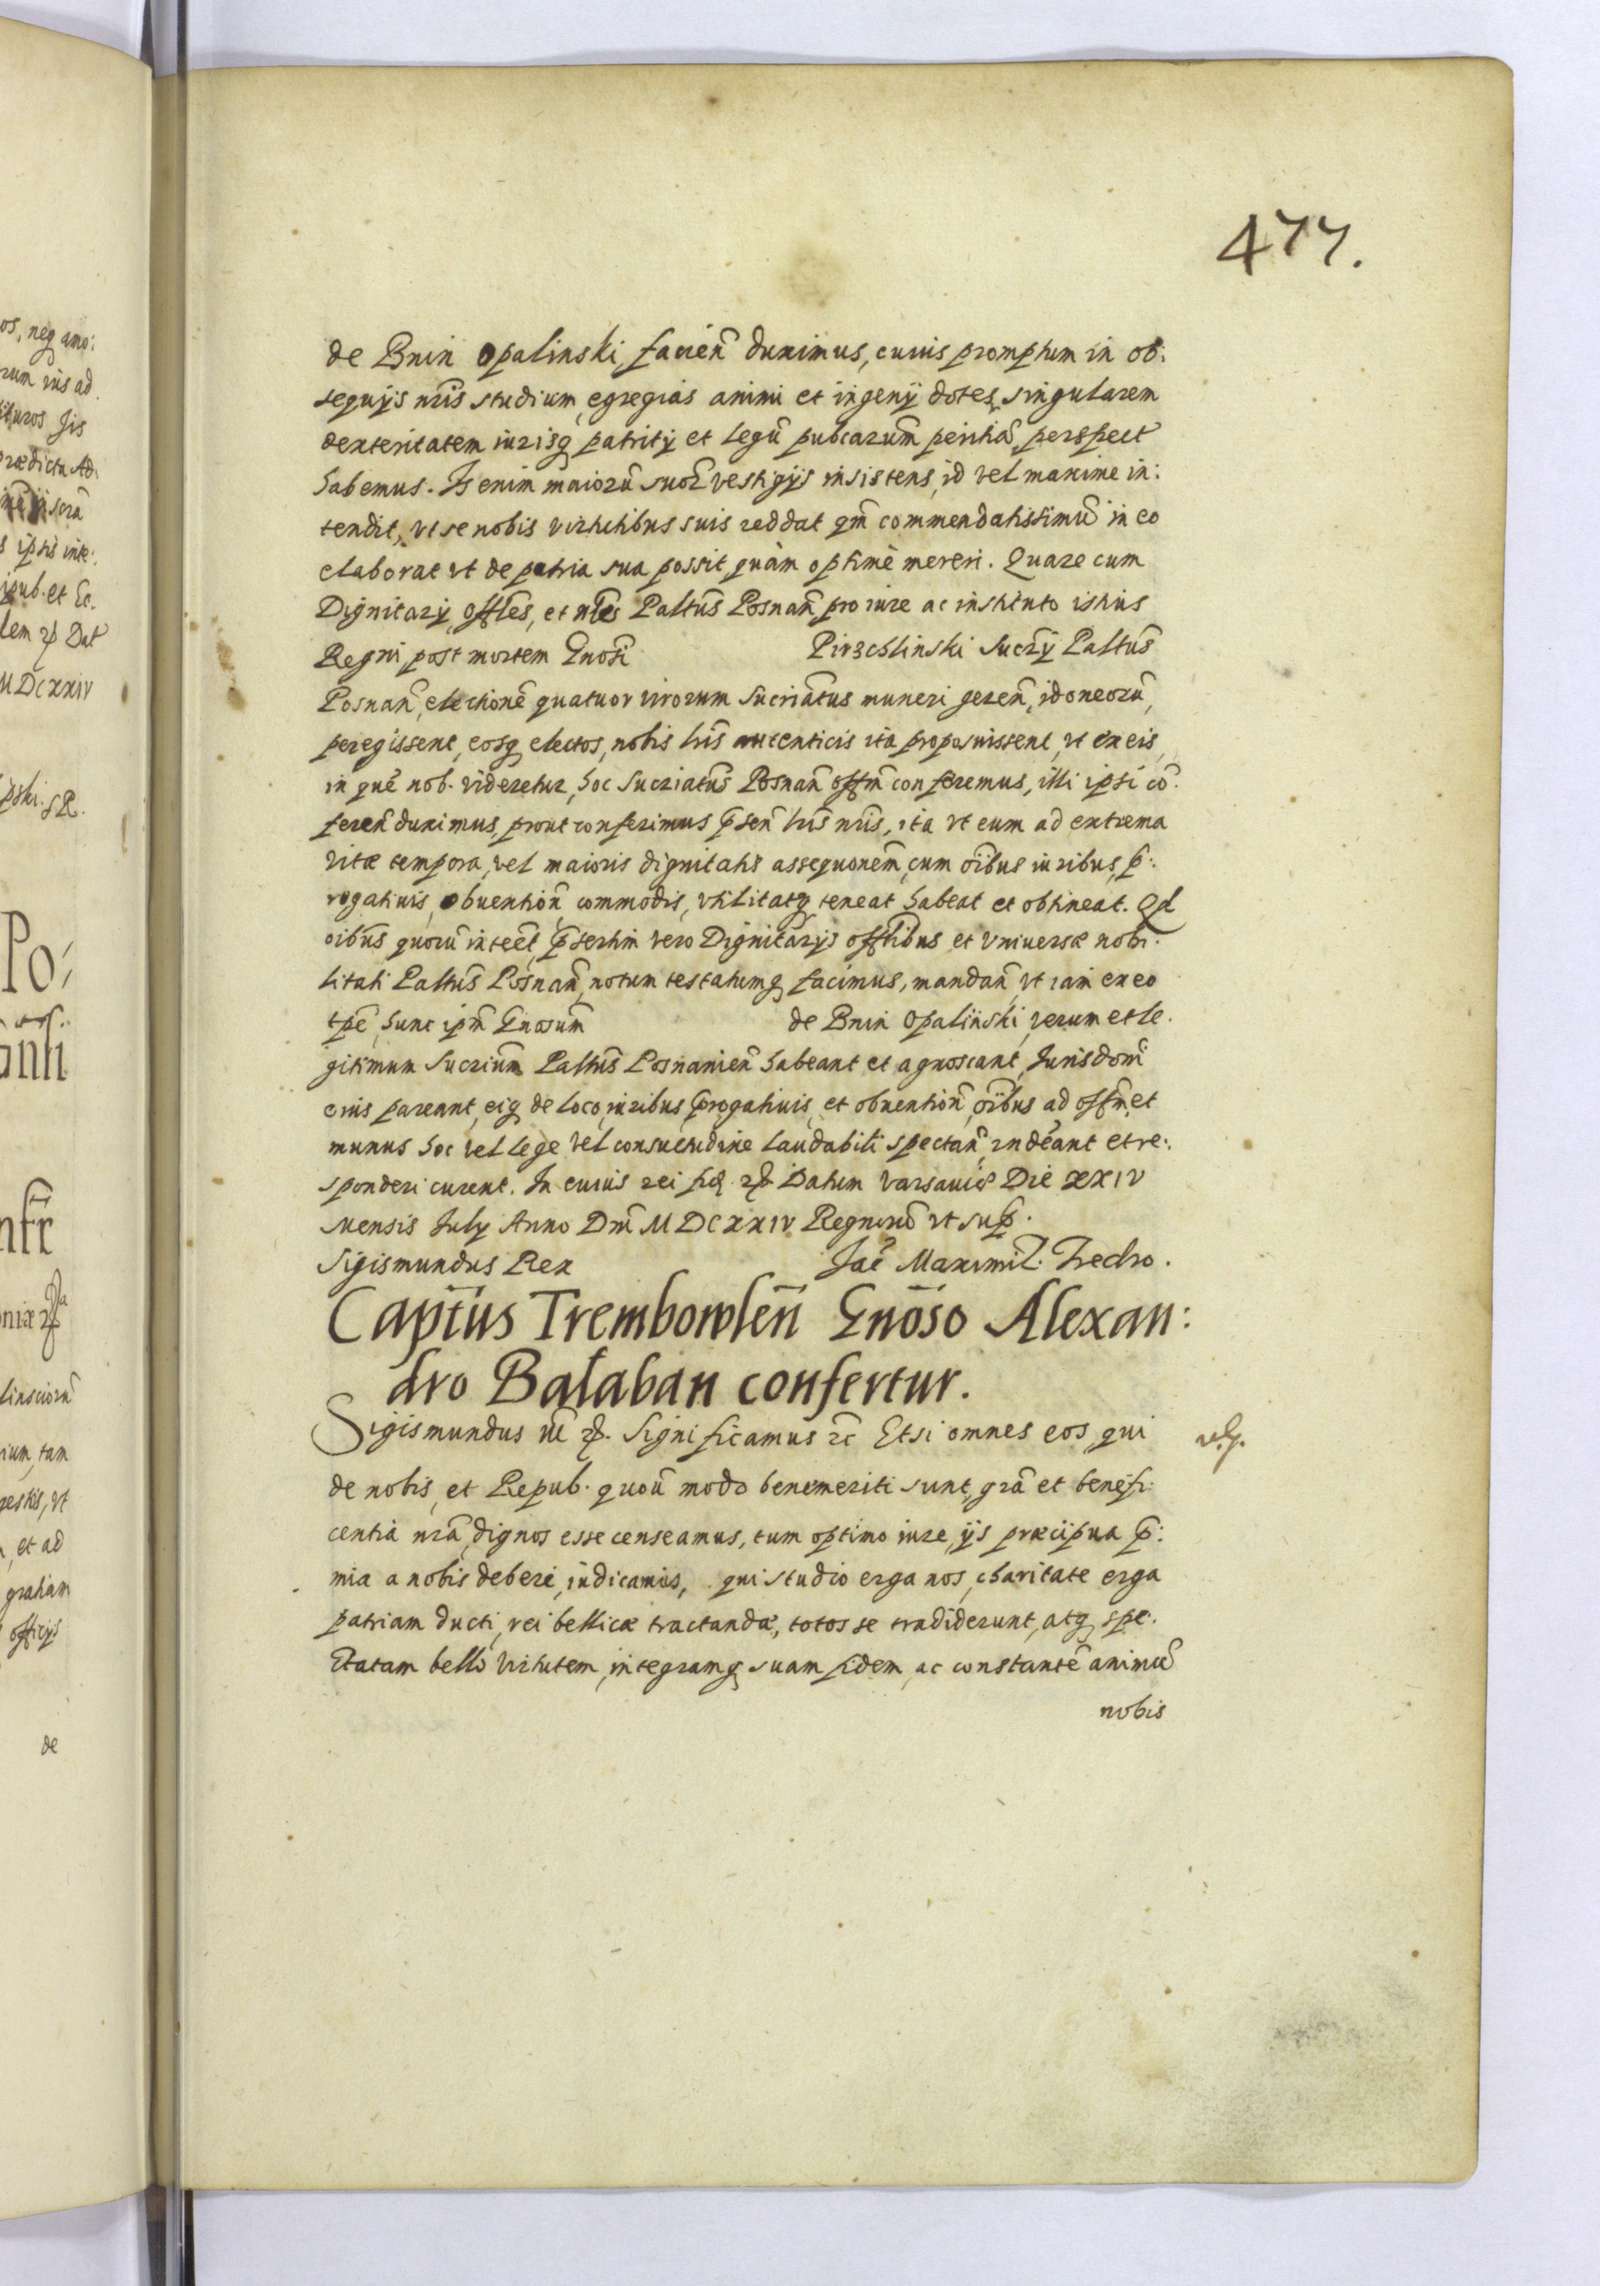 477.
de Bnin Opalinski, facień duximus, cuius promptum in ob:
sequijs nr̃is studium, egregias animi et ingenij dotes, singularem
dexteritatem iurisq patrity et legũ publcarum peritiã, perspect
habemus. Is enim maiorũ suor̃ vestigijs insistens, id vel maxime in:
tendit, vt se nobis virtutibus suis reddat qm̃ commendatissimũ in eo
elaborat vt de patria sua possit quàm optimè mereri. Quare cum
Dignitarij, Offles, et nlẽs Paltũs Posnañ, pro iure ac instituto istius
Regni post mortem Gnosi Pirzchlinski Sucrỹ Paltũs
Posnañ, electionẽ quatuor virorum Sucriatus muneri gereñ, idoneorũ,
peregissent, eosq electos, nobis lrĩs autenticis ita proposuissent, vt ex eis,
in quẽ nob. videretur, hoc Sucriatũs Posnañ offm̃ conferemus, illi ipsi cõ:
fereñ duximus, prout conferimus p̃señ lrĩs nrĩs, ita vt eum ad extrema
vitæ tempora, vel maioris dignitatis assequonẽm, cum oĩbus iuribus, p̃:
rogatiuis, obuentioñ, commodis, vtilitatq teneat habeat et obtineat. Qd
oibũs quorũ interẽt, p̃sertim vero Dignitarijs offlibus et vniuersæ nobi:
litati Paltũs Posnañ, notum testatumq facimus, mandañ, vt iam ex eo
tpẽ, hunc ipm̃ Gnosum de Bnin Opalinski, verum et le:
gitimum Sucrium Paltũs Posnanień habeant et agnoscant, Jurisdonĩ
eius pareant, eiq de loco, iuribus, p̃rogatiuis, et obuentioñ, oĩbus ad offm̃, et
munus hoc vel lege vel consuetudine laudabili spectañ, rndẽant et re:
sponderi curent. In cuius rei fid. etc. Datum Varsauiæ Die XXIV
Mensis July Anno Dnĩ MDCXXIV Regnorũ vt sup̃.
Sigismundus Rex Jac̃ Maximil. Fredro.
Captũs Trembowleñ Gnõso Alexan:
dro Balaban confertur.
Sigismundus III etc. Significamus etc. Etsi omnes eos, qui
de nobis, et Repub. quoũ modo benemeriti sunt, grã et benefi:
centia nrã, dignos esse censeamus, tum optimo iure, ijs præcipua p̃:
mia a nobis deberi, iudicamus, qui studio erga nos, charitate erga
patriam ducti, rei bellicæ tractandæ, totos se tradiderunt, atq spe:
ctatam bello virtutem, integramq suam fidem, ac constantẽ animũ
nobis